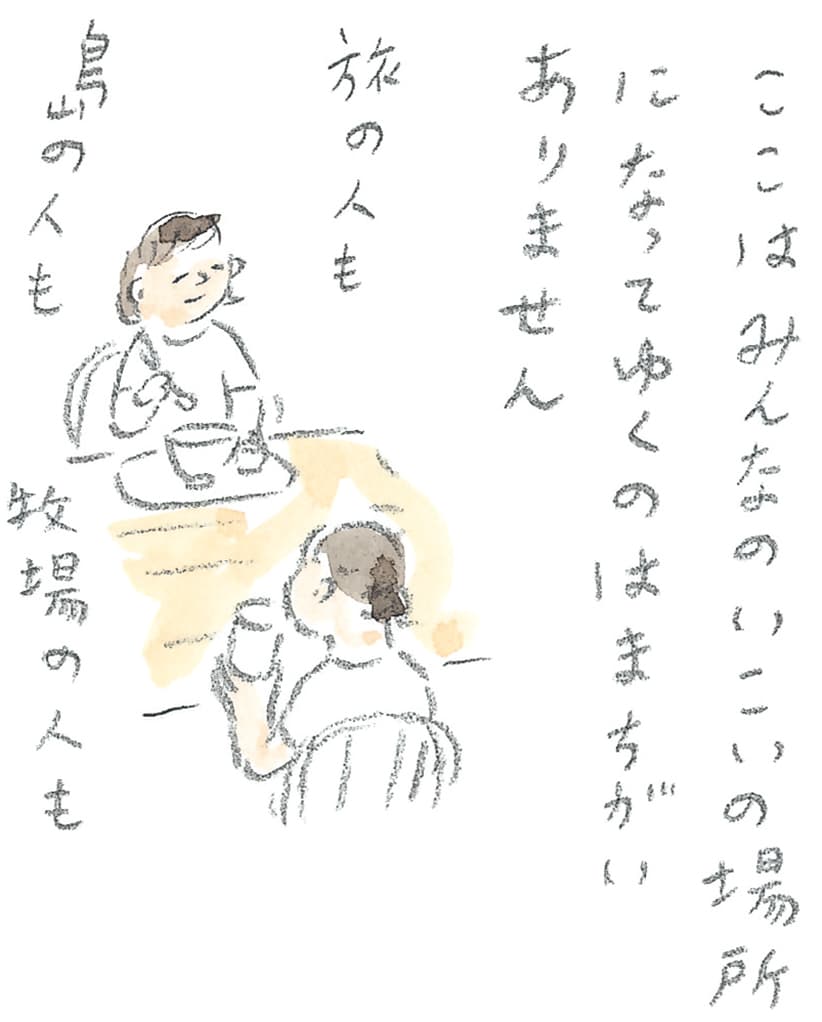 ここはみんなのいこいの場所
になってゆくのはまちがい
ありません
旅の人も
島の人も
牧場の人も